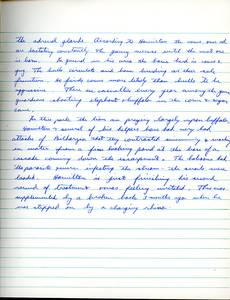 the adrenal glands. According to Hamilton the cows, one and
are lactating constantly the young nurses until the next one
is born. He found in his area the basic herd is cows &
young. The bulls consorts and bond breaking as their sole
function. He finds cows more likely than bulls to be
aggressive. There are casualties every year among the game
guardians shooting elephant & buffalo in the corn & sugar
cane.
In this park the lion are preying largely upon buffalo.
Hamilton & several of his helpers have had very bad
attacks of bilharzia that they contracted swimming & washing
in water from a fine looking pond at the base of a
cascade coming down the escarpment. The baboons had
the parasite germs infecting the stream - the snails were
loaded. Hamilton is just finishing his second
round of treatment & was feeling wretched. This was
supplemented by a broken back 3 months ago when he
was stepped on by a charging rhino.